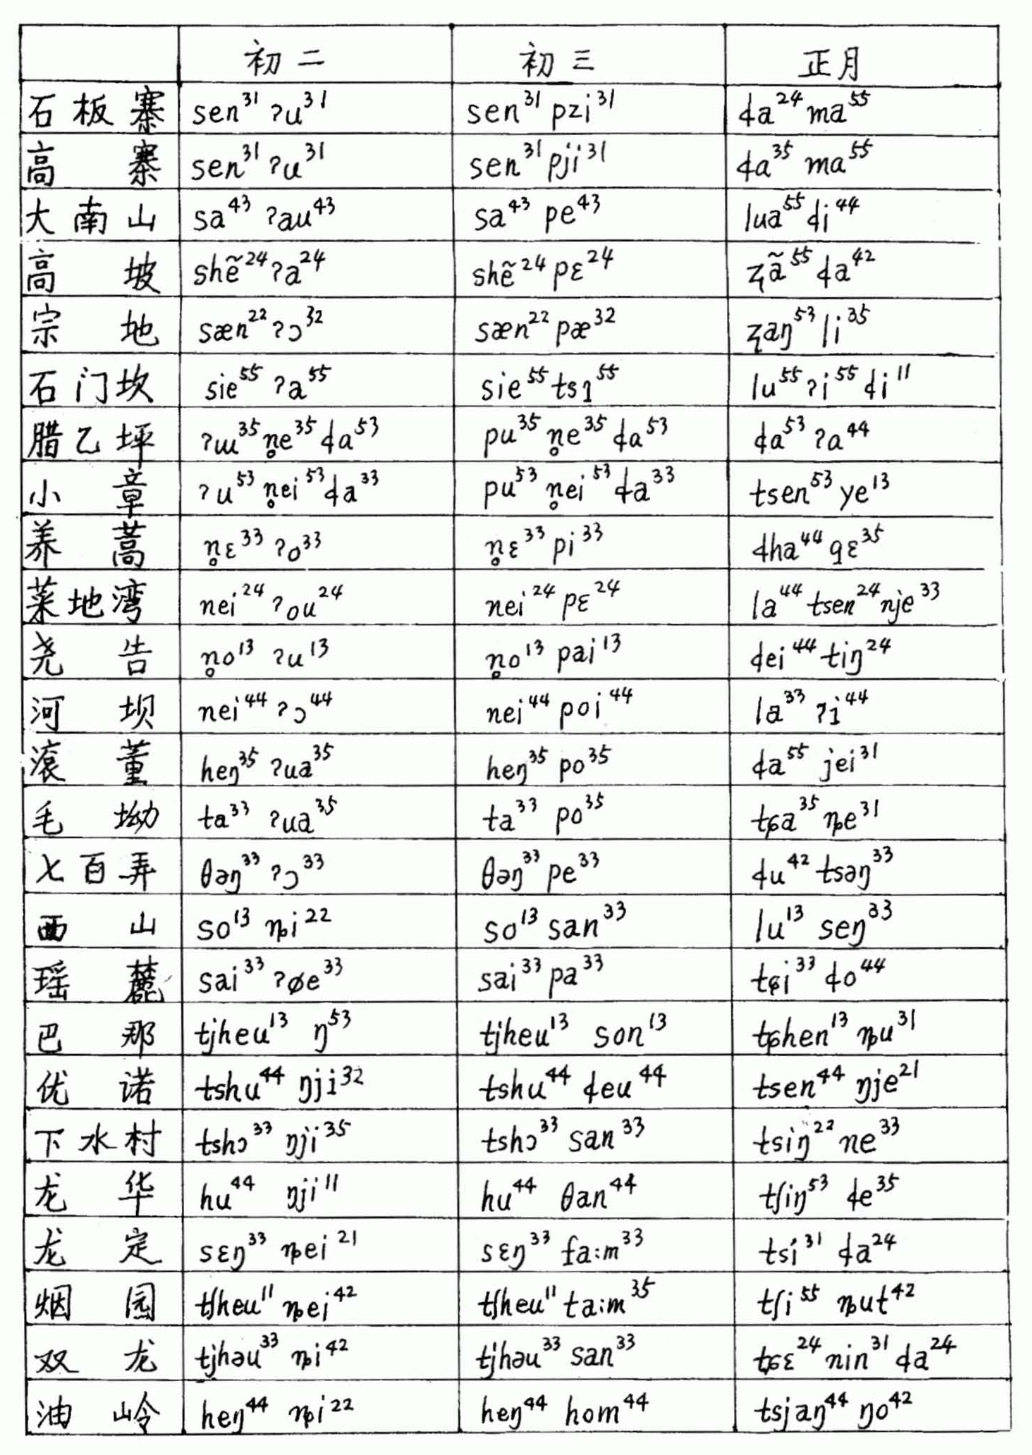 初二 初三 正月
石板寨 sen³¹ ʔu³¹ sen³¹ pzi³¹ ȡa²⁴ ma⁵⁵
高寨 sen³¹ ʔu³¹ sen³¹ pji³¹ ȡa³⁵ ma⁵⁵
大南山 sa⁴³ ʔau⁴³ sa⁴³ pe⁴³ lua⁵⁵ ȡi⁴⁴
高坡 shẽ²⁴ ʔa²⁴ shẽ²⁴ pɛ²⁴ ʐã⁵⁵ ȡa⁴²
宗地 sæn²² ʔɔ³² sæn²² pæ³² ʐaŋ⁵³ li³⁵
石门坎 sie⁵⁵ ʔa⁵⁵ sie⁵⁵ tsɿ⁵⁵ lu⁵⁵ ʔi⁵⁵ ȡi¹¹
腊乙坪 ʔɯ³⁵ n̥e³⁵ ȡa⁵³ pu³⁵ n̥e³⁵ ȡa⁵³ ȡa⁵³ ʔa⁴⁴
小章 ʔu⁵³ n̥ei⁵³ ȡa³³ pu⁵³ n̥ei⁵³ ȡa³³ tsen⁵³ ye¹³
养蒿 n̥ɛ³³ ʔo³³ n̥ɛ³³ pi³³ ȡha⁴⁴ qɛ³⁵
菜地湾 nei²⁴ ʔou²⁴ nei²⁴ pɛ²⁴ la⁴⁴ tsen²⁴ nje³³
尧告 n̥o¹³ ʔu¹³ n̥o¹³ pai¹³ ȡei⁴⁴ tiŋ²⁴
河坝 nei⁴⁴ ʔɔ⁴⁴ nei⁴⁴ poi⁴⁴ la³³ ʔi⁴⁴
滚董 heŋ³⁵ ʔua³⁵ heŋ³⁵ po³⁵ ȡa⁵⁵ jei³¹
毛坳 ta³³ ʔua³⁵ ta³³ po³⁵ tɕa³⁵ ȵe³¹
七百弄 θəŋ³³ ʔɔ³³ θəŋ³³ pe³³ ȡu⁴² tsəŋ³³
西山 so¹³ ȵi²² so¹³ san³³ lu¹³ seŋ³³
瑶麓 sai³³ ʔøe³³ sai³³ pa³³ tɕi³³ ȡo⁴⁴
巴那 tjheu¹³ ŋ⁵³ tjheu¹³ son¹³ tɕhen¹³ ȵu³¹
优诺 tshu⁴⁴ ŋji³² tshu⁴⁴ ȡeu⁴⁴ tsen⁴⁴ ŋje²¹
下水村 tshɔ³³ ŋji³⁵ tshɔ³³ san³³ tsiŋ²² ne³³
龙华 hu⁴⁴ ŋji¹¹ hu⁴⁴ θan⁴⁴ tʃiŋ⁵³ ȡe³⁵
龙定 sɛŋ³³ ȵei²¹ sɛŋ³³ fa:m³³ tsi³¹ ȡa²⁴
烟园 tʃheu¹¹ ȵei⁴² tʃheu¹¹ ta:m³⁵ tʃi⁵⁵ ȵut⁴²
双龙 tjhəu³³ ȵi⁴² tjhəu³³ san³³ tɕɛ²⁴ nin³¹ ȡa²⁴
油岭 heŋ⁴⁴ ȵi²² heŋ⁴⁴ hom⁴⁴ tsjaŋ⁴⁴ ŋo⁴²